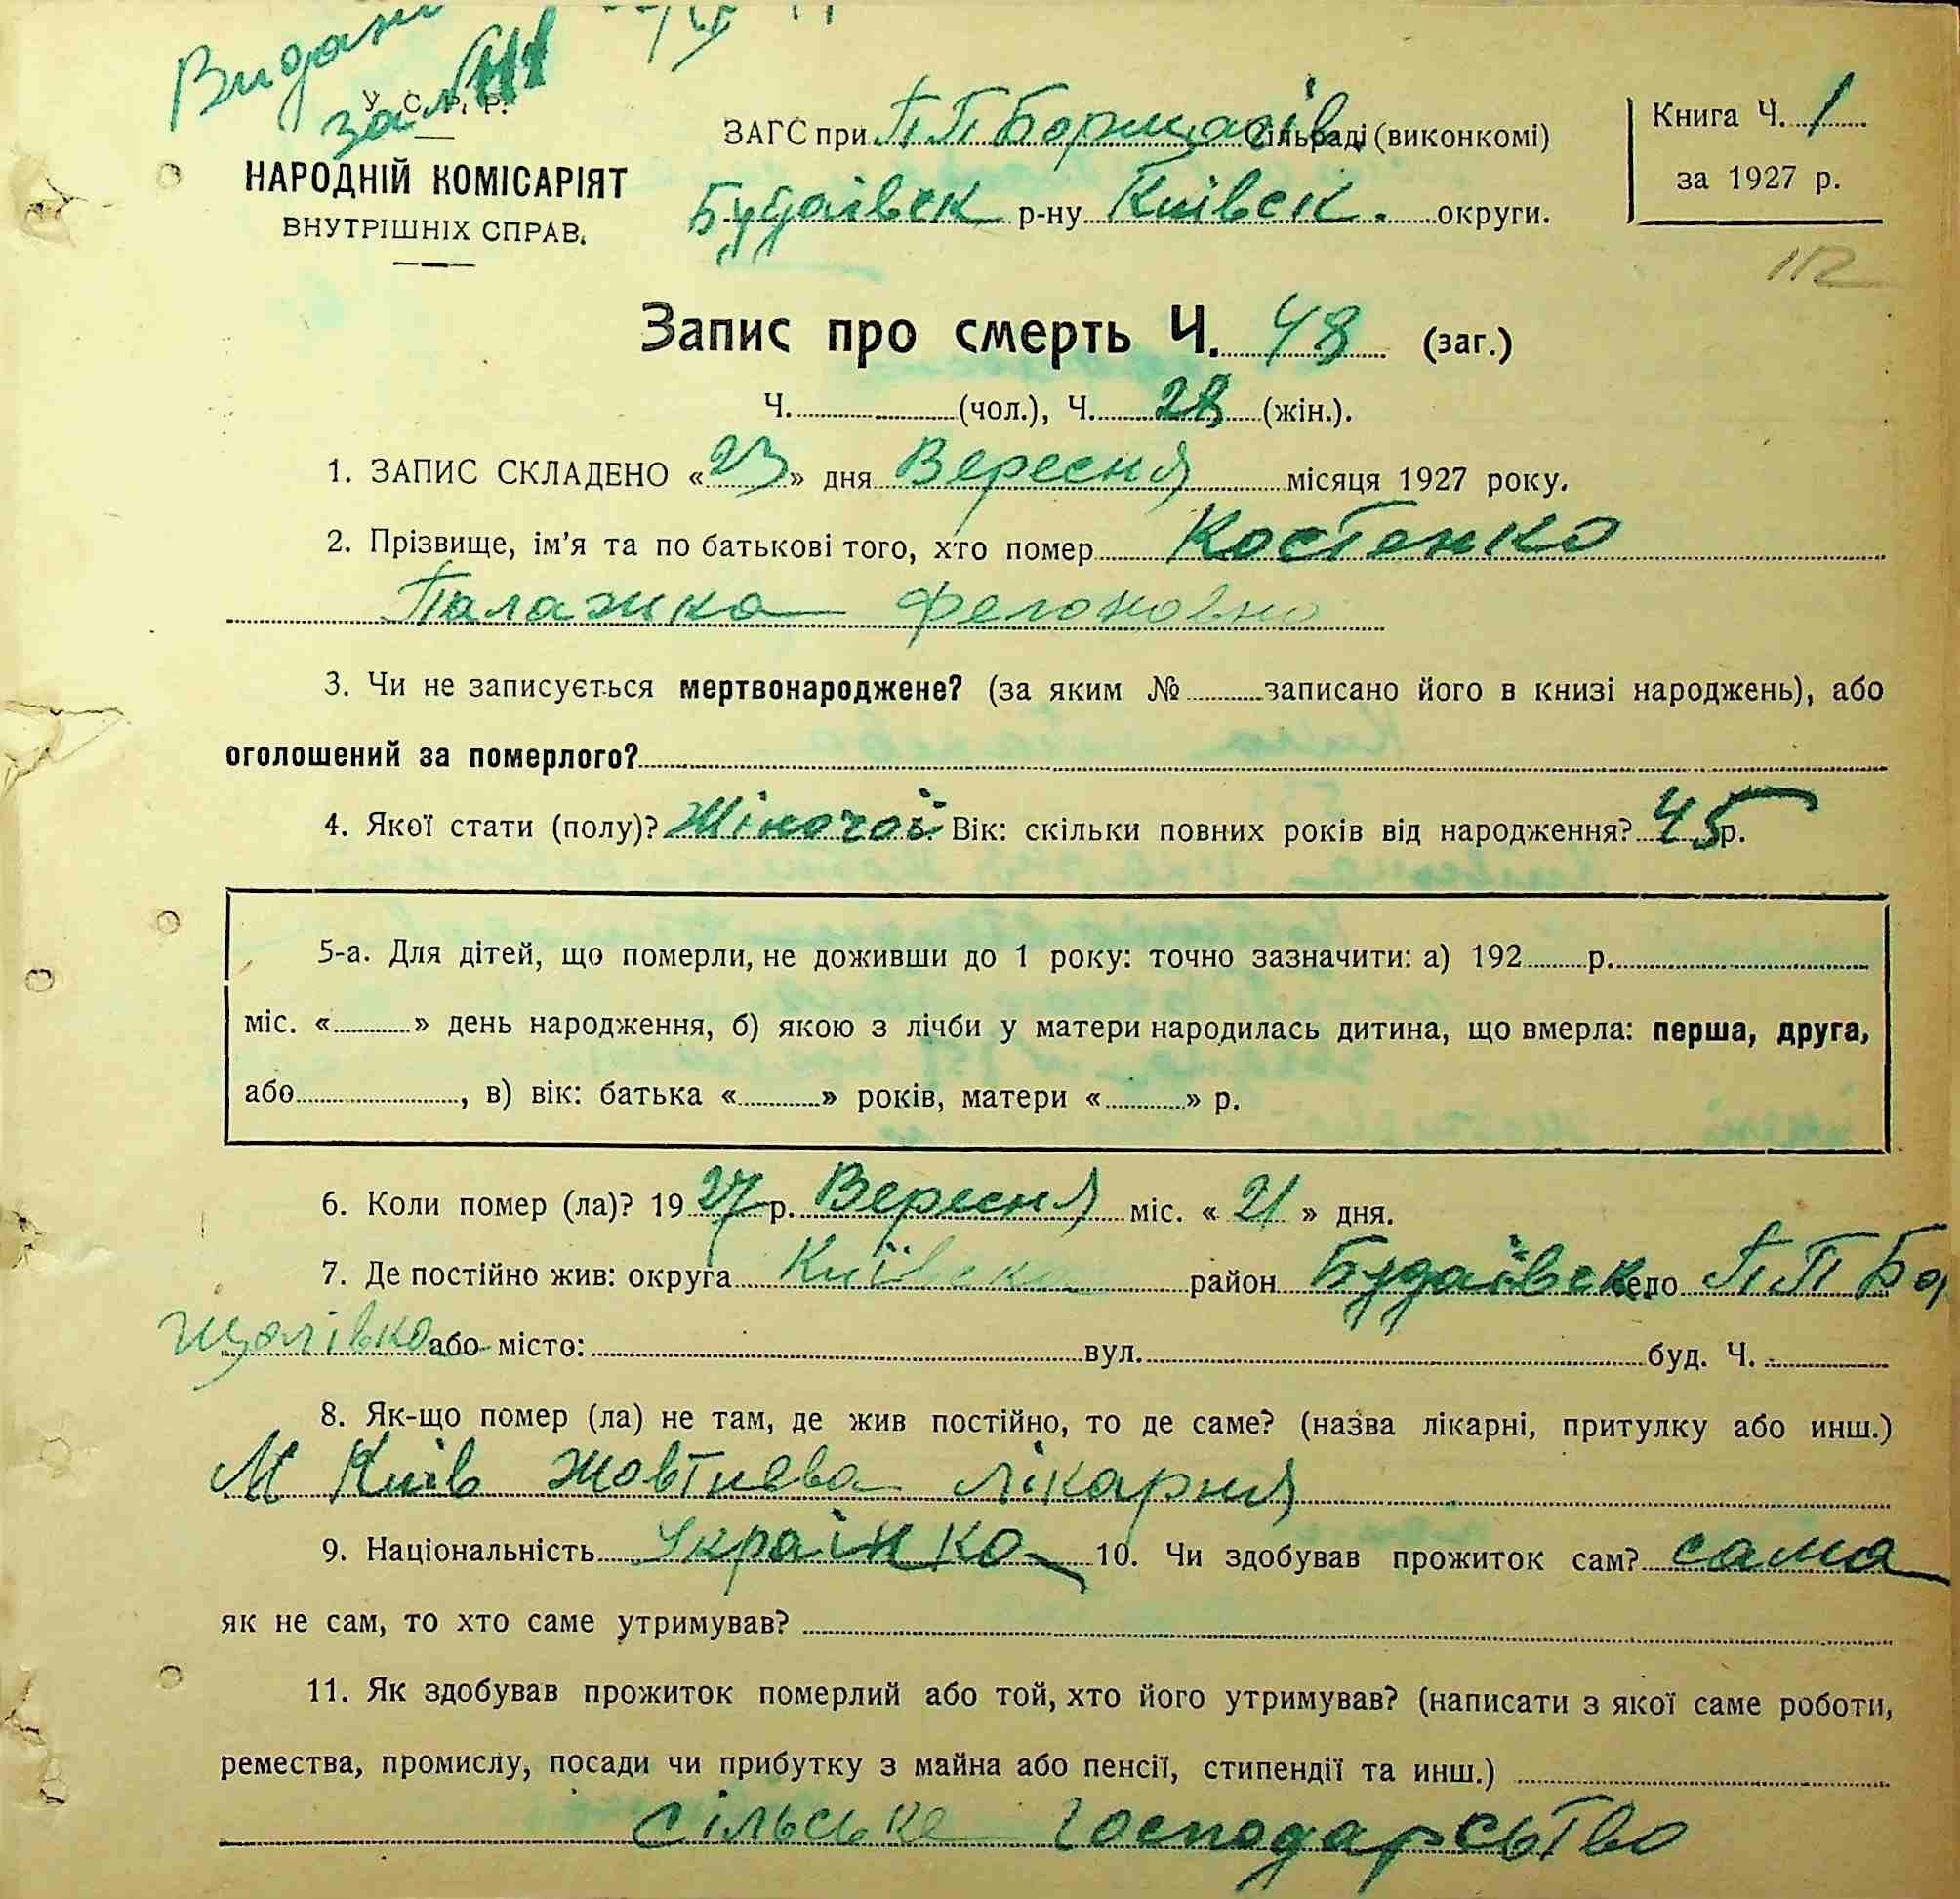 Видано
за №
У. С. Р. Р.
НАРОДНІЙ КОМІСАРІЯТ
ВНУТРІШНІХ СПРАВ.
ЗАГС при ПП Борщагів. Сільраді (виконкомі)
Будаівск р-ну Київск. округи.
Книга Ч. 1
за 1927 р.
112
Запис про смерть Ч. 48 (заг.)
Ч. (чол.), Ч. 28 (жін.).
1. ЗАПИС СКЛАДЕНО «23» дня Вересня місяця 1927 року.
2. Прізвище, ім'я та по батькові того, хто помер Костенко
Палажка
3. Чи не записується мертвонароджене? (за яким № записано його в книзі народжень), або
оголошений за померлого?
4. Якої стати (полу)? Жіночої Вік: скільки повних років від народження? 45 р.
5-а. Для дітей, що померли, не доживши до 1 року: точно зазначити: а) 192 р.
міс. « » день народження, б) якою з лічби у матери народилась дитина, що вмерла: перша, друга,
або , в) вік: батька « » років, матери « » р.
6. Коли помер (ла)? 19 27 р. Вересня міс. « 21 » дня.
7. Де постійно жив: округа Київска район Будаївск. село ПП Бор
щагівка або місто: вул. буд. Ч.
8. Як-що помер (ла) не там, де жив постійно, то де саме? (назва лікарні, притулку або инш.)
М Київ Жовтнева лікарня
9. Національність Українка 10. Чи здобував прожиток сам? сама
як не сам, то хто саме утримував?
11. Як здобував прожиток померлий або той, хто його утримував? (написати з якої саме роботи,
ремества, промислу, посади чи прибутку з майна або пенсії, стипендії та инш.)
сільське господарсьтво